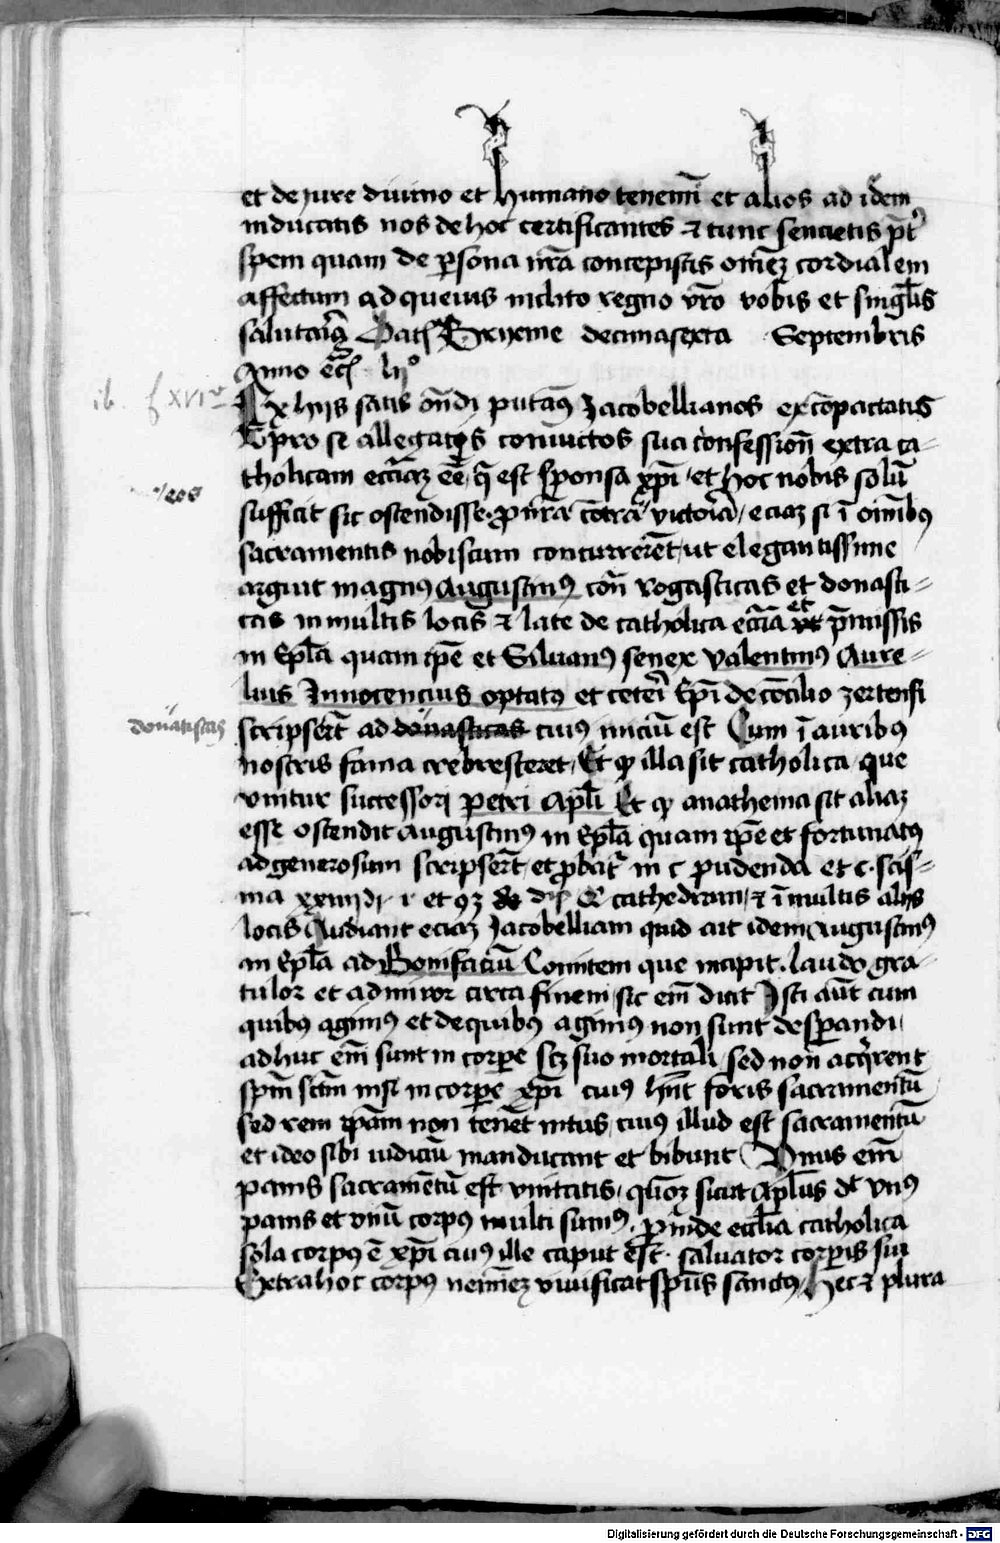 et de iure diuino et humano tenemī et alios ad idem
inducatis nos de hoc certificantes et tunc sencietis p̄t
spem quam de ꝑsona nr̄a concepistis om̄eꝫ cordialem
affectum ad queuis inclito regno vr̄o vobis et singl̄is
salutarꝫ Brixine decimasexta Septembris
Anno ec̄ lijº
ib. f xvi
Ex hijs satis on̄di putamꝰ Jacobellianos ex cōpactatis
pro se allegatis conuictos sua confession̄ extra ca-
tholicam ecc̄iaꝫ eē, q̄ est sponsa xp̄i, et hoc nobis solū
eos
sufficit sic ostendisse, ꝓ nr̄a cōtra victoria, eciaꝫ si ī omībꝰ
sacramentis nobiscum concurrerēt, ut elegantissime
arguit magnꝰ Augustinꝰ con̄ rogasticas et donasti-
cas in multis locis et late de catholica ecc̄ia et p̄missis
in Epl̄a quam ip̄e et Siluanꝰ senex Valentinꝰ Aure-
lius Innocencius optatꝰ et ceteri Ep̄i de cōcilio zertensi
donatistas
scripserūt ad donasticas cuiꝰ iniciū est Cum ī auribꝰ
nostris fama crebresceret, Et ꝙ illa sit catholica que
vnitur successori petri Apl̄i Et ꝙ anathema sit aliaꝫ
esse ostendit Augustinꝰ in Epl̄a quam ip̄e et fortunatꝰ
ad generosum scripserūt et ꝓbat̄ in c pudenda et c. scis-
ma xxiiij di r et cathedram, et ī multis alijs
locis Audiant eciaꝫ Jacobelliani quid ait idem Augustinꝰ
in Epl̄a ad Bonifaciū Comitem que incipit. laudo gra-
tulor et admiror circa finem, sic em̄ dicit Isti aūt cum
quibꝰ agimꝰ et de quibꝰ agimꝰ non sunt desꝑandi,
adhuc em̄ sunt in corꝑe scꝫ suo mortali, sed non acq̄rent
sp̄m scm̄ nisi in corꝑe xp̄i cuiꝰ hn̄t foris sacramentū
sed rem ip̄am non tenēt intus, cuiꝰ illud est sacramentū
et ideo sibi iudiciū manducant et bibunt Vnus em̄
panis sacramētū est vnitatis, qm̄ sicut Apl̄us dt̄ vnꝰ
panis et vnū corpꝰ multi sumꝰ, ꝓinde eccl̄ia catholica
sola corpꝰ ē xp̄i cuiꝰ ille caput est. saluator corꝑis sui
Extra hoc corpꝰ neminem viuificat sp̄us sanctꝰ, Hec et plura